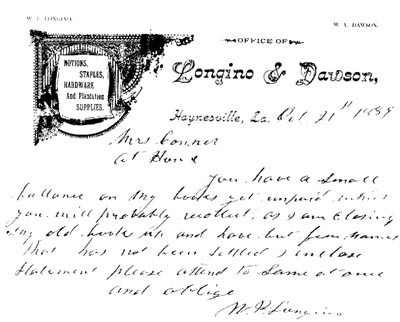 W. P. LONGINO.
W. A. DAWSON.
OFFICE OF
Longino & Dawson,
NOTIONS,
STAPLES,
HARDWARE
And Plantation
SUPPLIES.
Haynesville, La. Oct. 21st 1889
Mrs Conner
At Home
You have a small
ballance on my books yet unpaid which
you will probably recollect, as I am closing
my old books up and have but few names
that has not been settled I enclose
statement please attend to same at once
and oblige
W. P. Longino